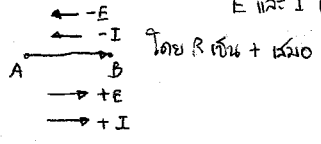 E และ I
← -E
← -I
A B โดย R เป็น + เสมอ
→ +E
→ +I